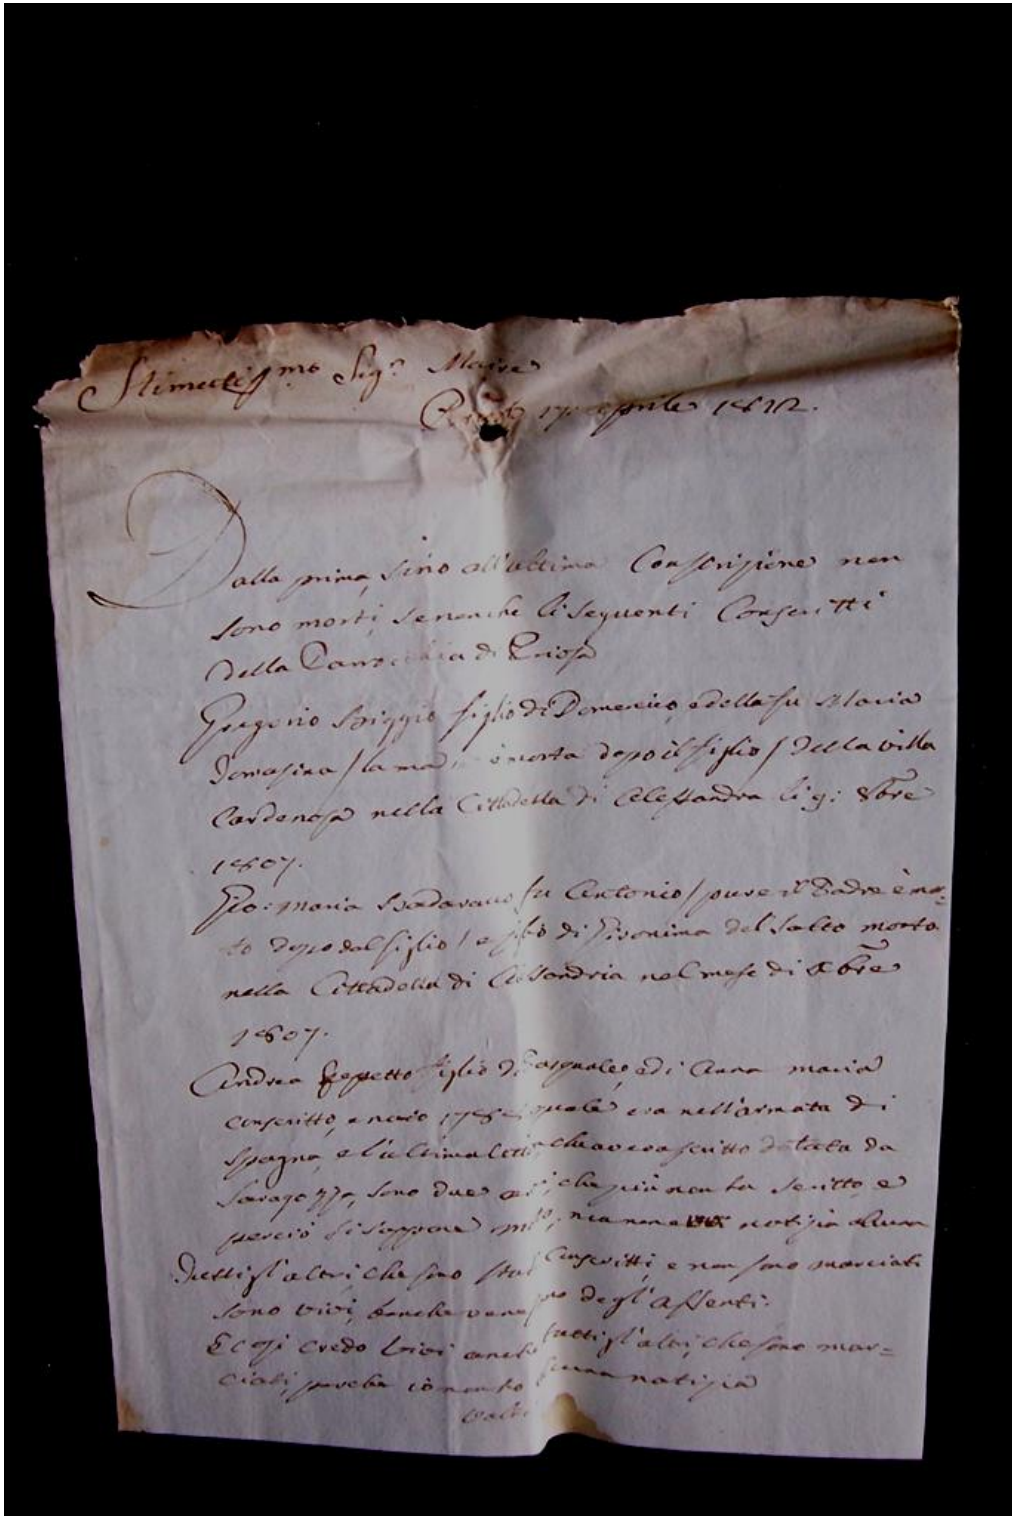 Stimatissmo Sigr Maire
17 aprile 1812.
Dalla prima, sino all'ultima Conscrizione non
sono morti, se non che li seguenti Conscritti
della Parrocchia di Priosa
Gregorio figlio di Domenico, e della fu Maria
Tomasina / la ma è morta dopo il figlio / della villa
Cardenosa nella Cittadella di Alessandra li 9: 8bre
1807.
Gio: Maria fu Antonio / pure il Padre è mor=
to dopo dal figlio / e di Gironima del Salto morto
nella Cittadella di Alessandria nel mese di Xbre
1807.
Andrea Repetto figlio di Pasquale, e di Anna Maria
conscritto, quale era nell'armata di
Spagna, e l'ultima che aveva scritto datata da
Saragozza, sono due che più non ha scritto, e
perciò si suppone non notizia alcuna
Tutti gl'altri, che sono Conscritti, e non sono marciati
sono vivi, benche degl'assenti.
E così credo vivi tutti gl'altri, che sono mar=
ciati, perche io non ho notizia